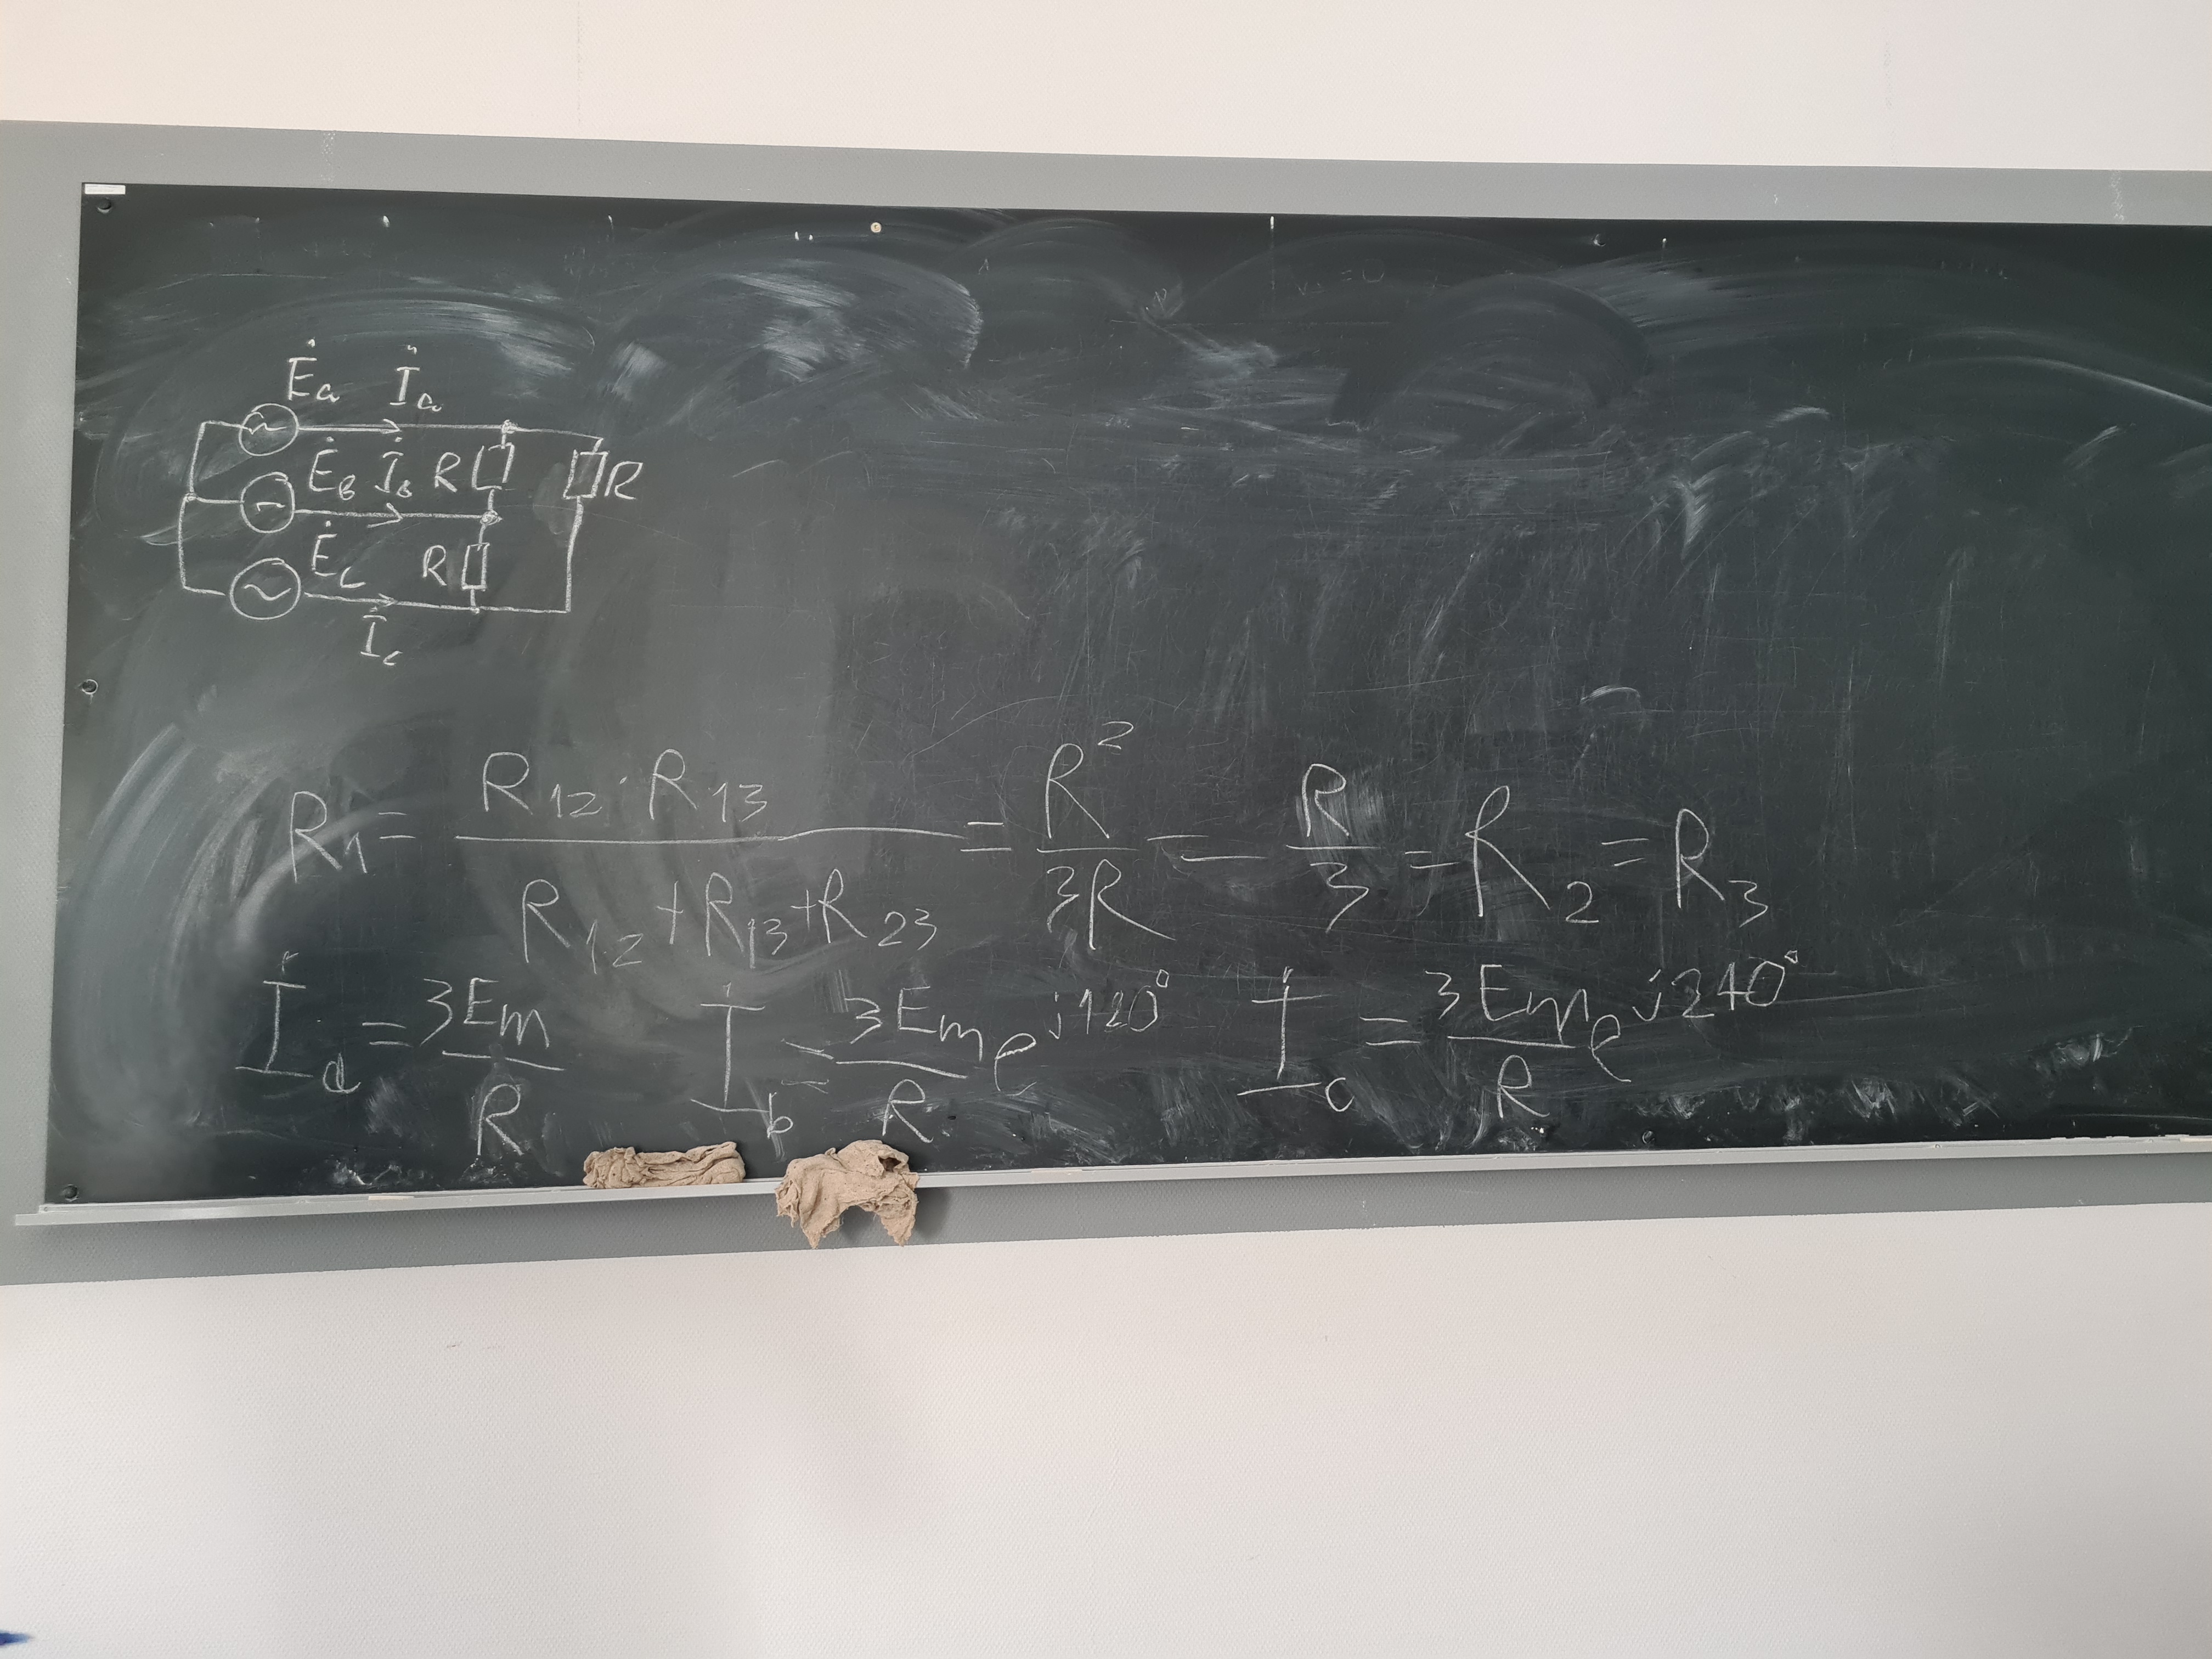 Ėa İa
Ėв İв R R
Ėc R
İc
R1 = R12 · R13 / R12 + R13 + R23 = R² / 3R = R / 3 = R2 = R3
İa = 3Em / R İb = 3Em / R e^j120° İc = 3Em / R e^j240°